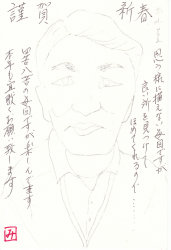 謹賀新春
思う様に描えない毎日ですが
良い所を見つけて
ほめてくれるので……
四苦八苦の毎日ですが楽しんでます!
本年も宜敷くお願い致します
み